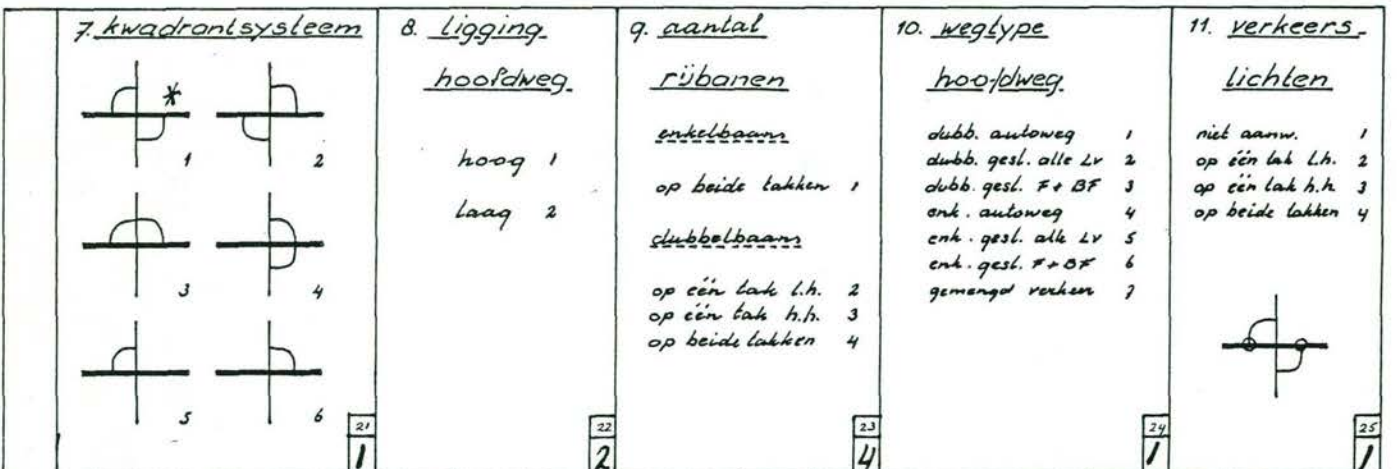 7. kwadrantsysteem
*
1
2
3
4
5
6
21
1
8. ligging
hoofdweg
hoog 1
laag 2
22
2
9. aantal
rijbanen
enkelbaans
op beide takken 1
dubbelbaans
op één tak l.h. 2
op één tak h.h. 3
op beide takken 4
23
4
10. wegtype
hoofdweg
dubb. autoweg 1
dubb. gesl. alle Lv 2
dubb. gesl. F + BF 3
enk. autoweg 4
enk. gesl. alle Lv 5
enk. gesl. F + BF 6
gemengd verkeer 7
24
1
11. verkeers-
lichten
niet aanw. 1
op één tak l.h. 2
op één tak h.h 3
op beide takken 4
25
1